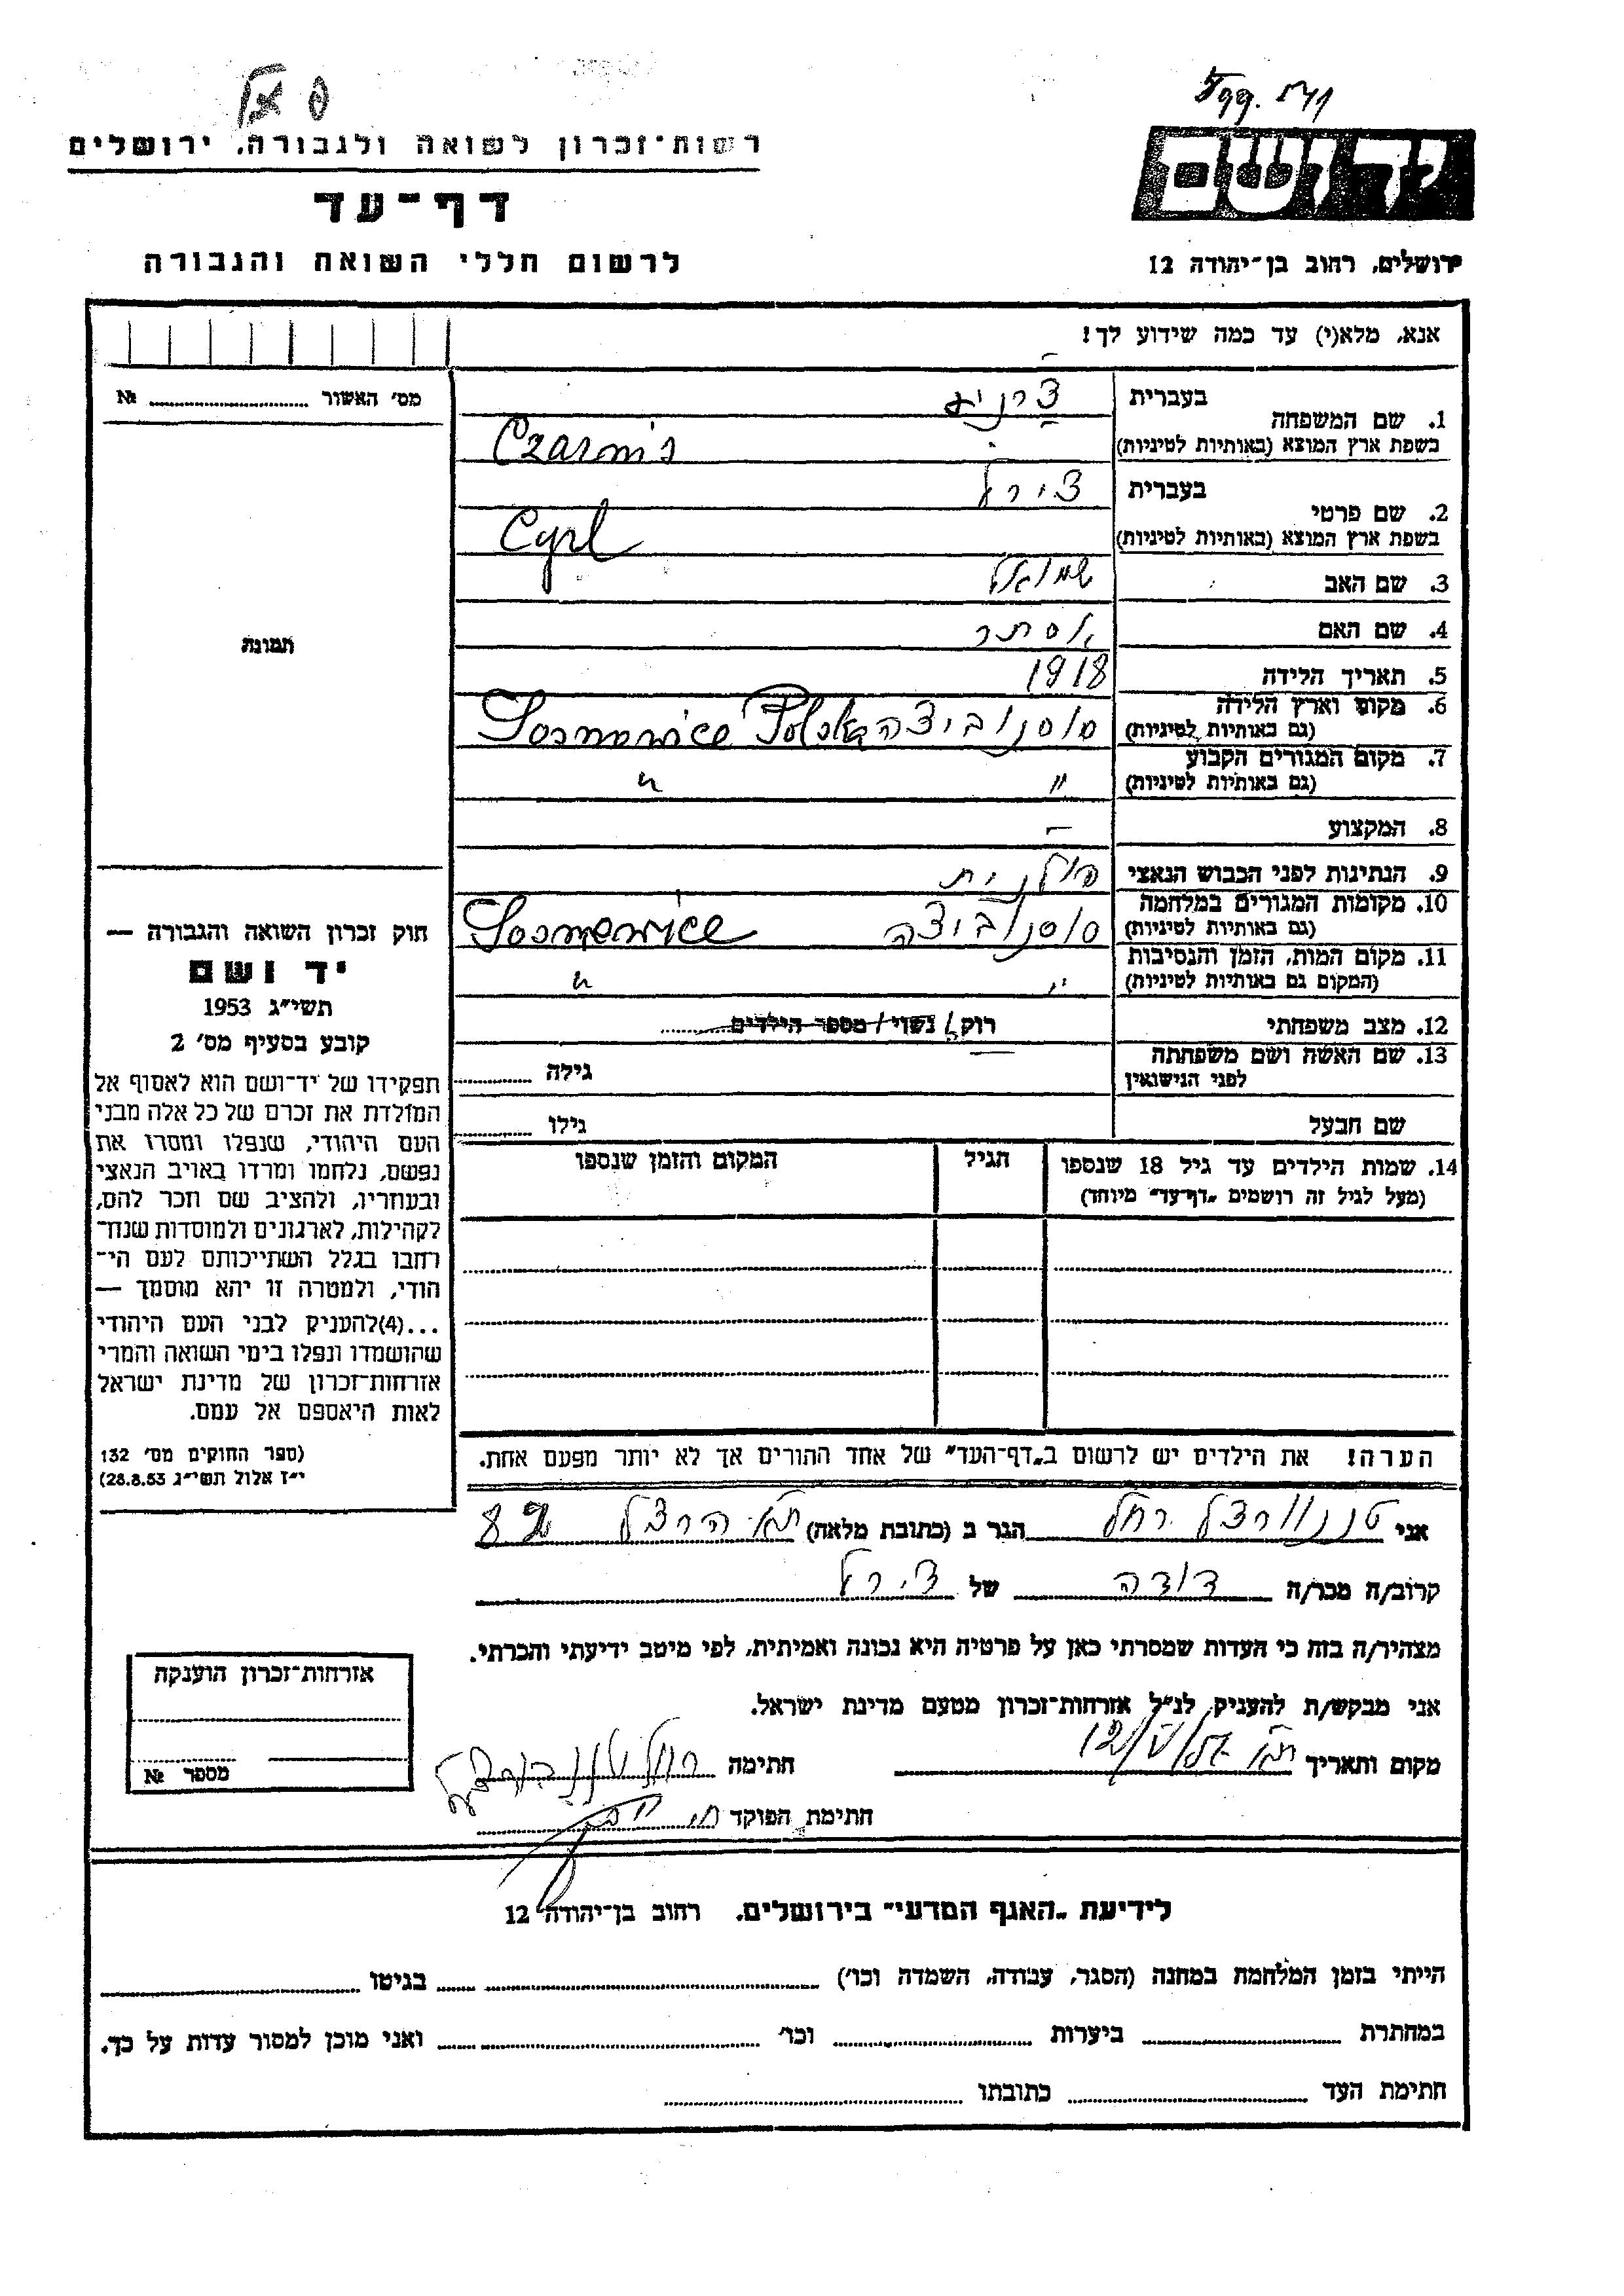 רשות-זכרון לשואה ולגבורה, ירושלים
דף-עד
לרשום חללי השואה והגבורה
יד ושם
ירושלים, רחוב בן-יהודה 12
אנא, מלא(י) עד כמה שידוע לך!
1. שם המשפחה
בעברית
בשפת ארץ המוצא (באותיות לטיניות)
2. שם פרטי
בעברית צירל
בשפת ארץ המוצא (באותיות לטיניות) Cyrl
3. שם האב שמואל
4. שם האם אסתר
5. תאריך הלידה 1918
6. מקום וארץ הלידה
(גם באותיות לטיניות) סוסנוביצה Sosnowice Polska
7. מקום המגורים הקבוע
(גם באותיות לטיניות) " "
8. המקצוע –
9. הנתינות לפני הכבוש הנאצי פולנית
10. מקומות המגורים במלחמה
(גם באותיות לטיניות) סוסנוביצה Sosnowice
11. מקום המות, הזמן והנסיבות
(המקום גם באותיות לטיניות) " "
12. מצב משפחתי רוק/ נשוי / מספר הילדים
13. שם האשה ושם משפחתה
לפני הנישואין גילה
שם הבעל גילו
14. שמות הילדים עד גיל 18 שנספו
(מעל לגיל זה רושמים "דף-עד" מיוחד)
הגיל
המקום והזמן שנספו
הערה! את הילדים יש לרשום ב"דף-העד" של אחד ההורים אך לא יותר מפעם אחת.
מס' האשור №
תמונה
חוק זכרון השואה והגבורה —
יד ושם
תשי"ג 1953
קובע בסעיף מס' 2
תפקידו של יד-ושם הוא לאסוף אל
המולדת את זכרם של כל אלה מבני
העם היהודי, שנפלו ומסרו את
נפשם, נלחמו ומרדו באויב הנאצי
ובעוזריו, ולהציב שם וזכר להם,
לקהילות, לארגונים ולמוסדות שנח-
רבו בגלל השתייכותם לעם הי-
הודי, ולמטרה זו יהא מוסמך —
...(4)להעניק לבני העם היהודי
שהושמדו ונפלו בימי השואה והמרי
אזרחות-זכרון של מדינת ישראל
לאות היאספם אל עמם.
(ספר החוקים מס' 132
י"ז אלול תשי"ג 28.8.53)
אני רחל הגר ב (כתובת מלאה) ת"א הרצל
קרוב/ה מכר/ה דודה של צירל
מצהיר/ה בזה כי העדות שמסרתי כאן על פרטיה היא נכונה ואמיתית, לפי מיטב ידיעתי והכרתי.
אני מבקש/ת להעניק לנ"ל אזרחות-זכרון מטעם מדינת ישראל.
מקום ותאריך ת"א חתימה רחל
חתימת הפוקד
אזרחות-זכרון הוענקה
מספר №
לידיעת "האגף המדעי" בירושלים. רחוב בן-יהודה 12
הייתי בזמן המלחמה במחנה (הסגר, עבודה, השמדה וכו') בגיטו
במחתרת ביערות וכו' ואני מוכן למסור עדות על כך.
חתימת העד כתובתו